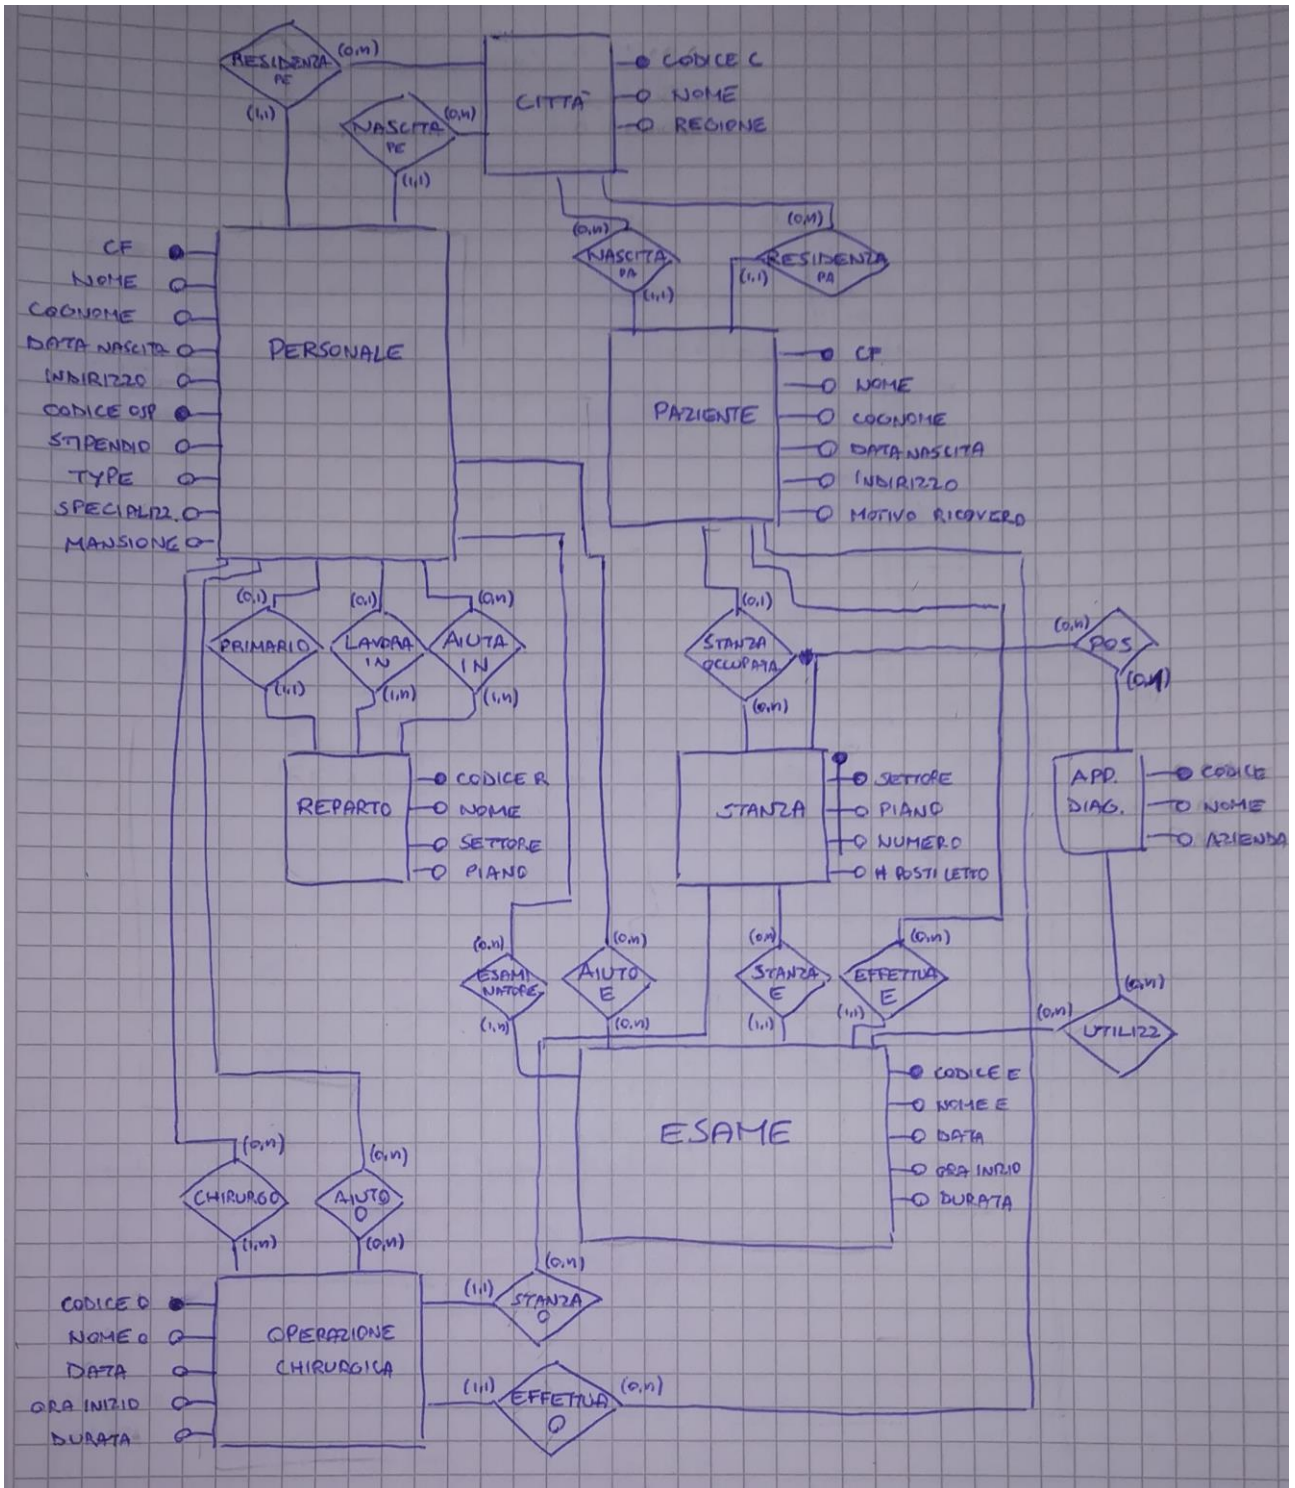 RESIDENZA
PE
(0,n)
(1,1)
NASCITA
PE
(0,n)
(1,1)
CITTÀ
CODICE C
NOME
REGIONE
(0,n)
NASCITA
PA
(1,1)
(0,n)
RESIDENZA
PA
(1,1)
CF
NOME
COGNOME
DATA NASCITA
INDIRIZZO
CODICE OSP
STIPENDIO
TYPE
SPECIALIZZ.
MANSIONE
PERSONALE
PAZIENTE
CF
NOME
COGNOME
DATA NASCITA
INDIRIZZO
MOTIVO RICOVERO
(0,1)
PRIMARIO
(1,1)
(0,1)
LAVORA
IN
(1,n)
(0,n)
AIUTA
IN
(1,n)
(0,1)
STANZA
OCCUPATA
(0,n)
(0,n)
POS
(0,n)
REPARTO
CODICE R
NOME
SETTORE
PIANO
STANZA
SETTORE
PIANO
NUMERO
# POSTI LETTO
APP.
DIAG.
CODICE
NOME
AZIENDA
(0,n)
ESAMI
NATORE
(1,n)
(0,n)
AIUTO
E
(0,n)
(0,n)
STANZA
E
(1,1)
(0,n)
EFFETTUA
E
(1,1)
(0,n)
(0,n)
UTILIZZ
ESAME
CODICE E
NOME E
DATA
ORA INIZIO
DURATA
(0,n)
CHIRURGO
(1,n)
(0,n)
AIUTO
O
(0,n)
CODICE O
NOME O
DATA
ORA INIZIO
DURATA
OPERAZIONE
CHIRURGICA
(0,n)
(1,1)
STANZA
O
(1,1)
EFFETTUA
O
(0,n)